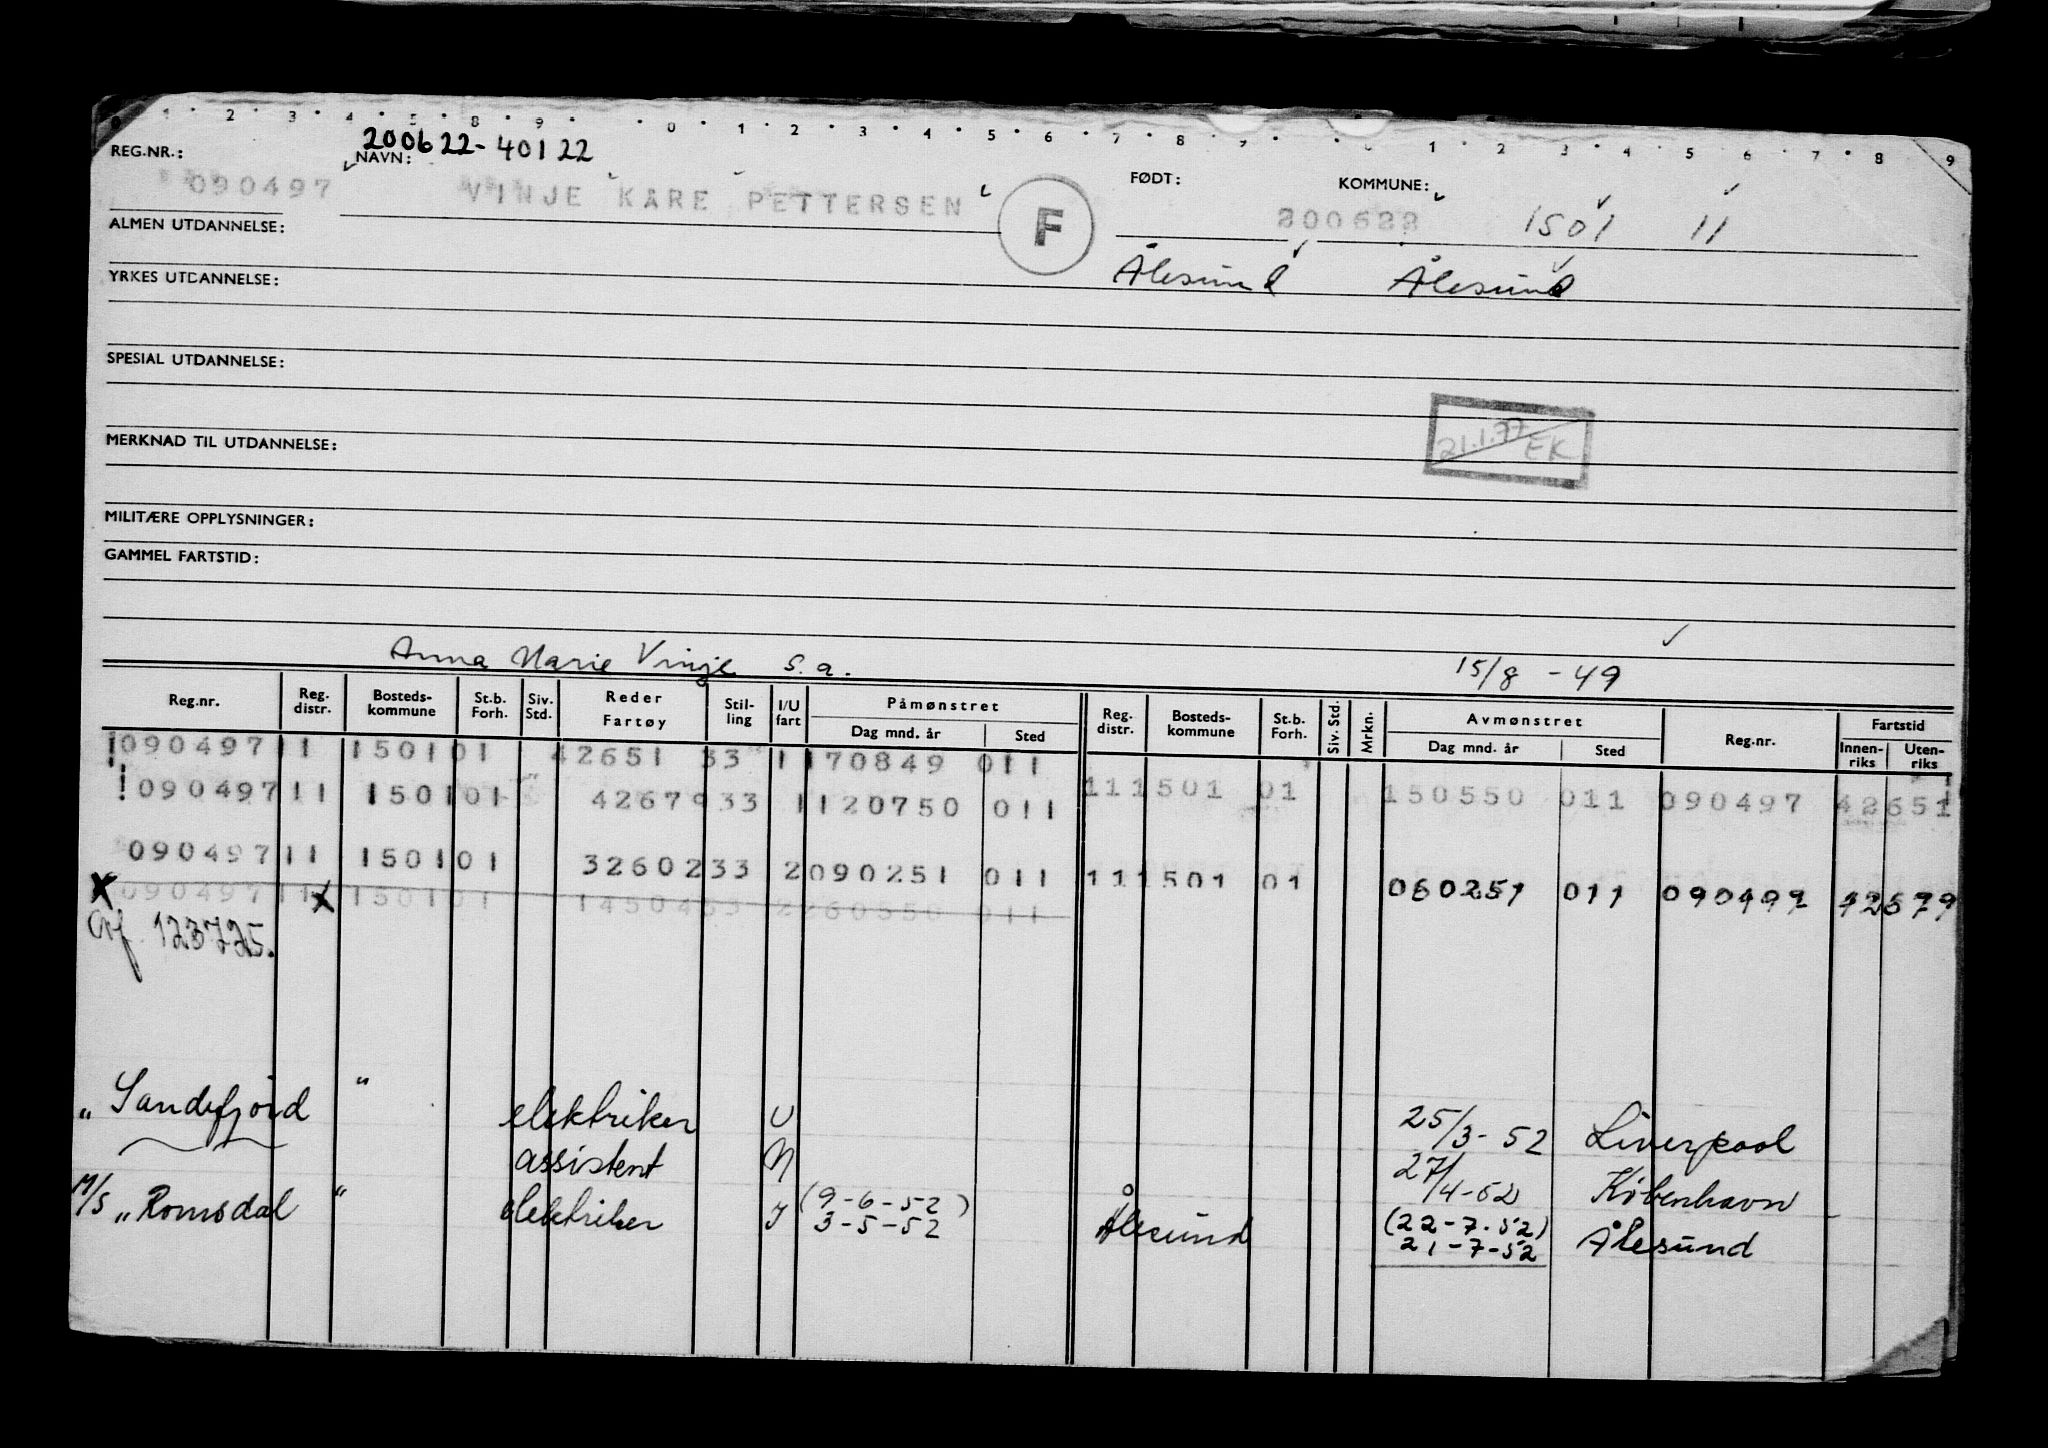 0 1 2 3 4 5 8 9 0 1 2 3 4 5 6 7 8 9 1 2 3 4 5 6 7 8 9
200622-40122
REG.NR.: NAVN: FØDT: KOMMUNE:
090497 VINJE KARE PETTERSEN F 200622 1501 11
ALMEN UTDANNELSE:
Ålesund Ålesund
YRKES UTDANNELSE:
SPESIAL UTDANNELSE:
21.1.77 EK
MERKNAD TIL UTDANNELSE:
MILITÆRE OPPLYSNINGER:
GAMMEL FARTSTID:
Anna Marie Vinje s.a. 15/8 - 49
Reg.nr. Reg. distr. Bosteds-kommune St.b. Forh. Siv. Std. Reder Fartøy Stil-ling I/U fart Påmønstret Dag mnd. år Sted Reg. distr. Bosteds-kommune St.b. Forh. Siv. Std. Mrkn. Avmønstret Dag mnd. år Sted Reg.nr. Fartstid Innen-riks Uten-riks
!090497 11 1501 01 42651 33 1 170849 011
!090497 11 1501 01 42679 33 1 120750 011 11 1501 01 150550 011 090497 42651
090497 11 1501 01 32602 33 2 090251 011 11 1501 01 060251 011 090497 42679
X 090497 11 X 1501 01 14504 33 2 260550 011
Crf 123725.
"Sandefjord" elektriker U 25/3-52 Liverpool
assistent N 27/4-52 København
M/S "Romsdal" elektriker I (9-6-52) 3-5-52 Ålesund (22-7-52) 21-7-52 Ålesund